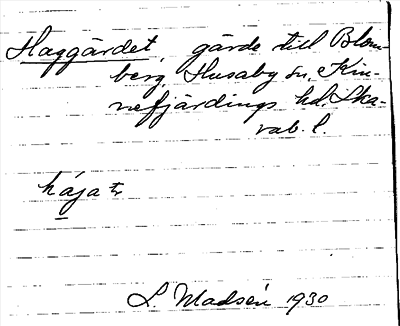 Haggärdet, gärde till Blom-
berg, Husaby sn, Kin-
nefjärdings hd, Ska-
rab. l.
L. Madsén 1930